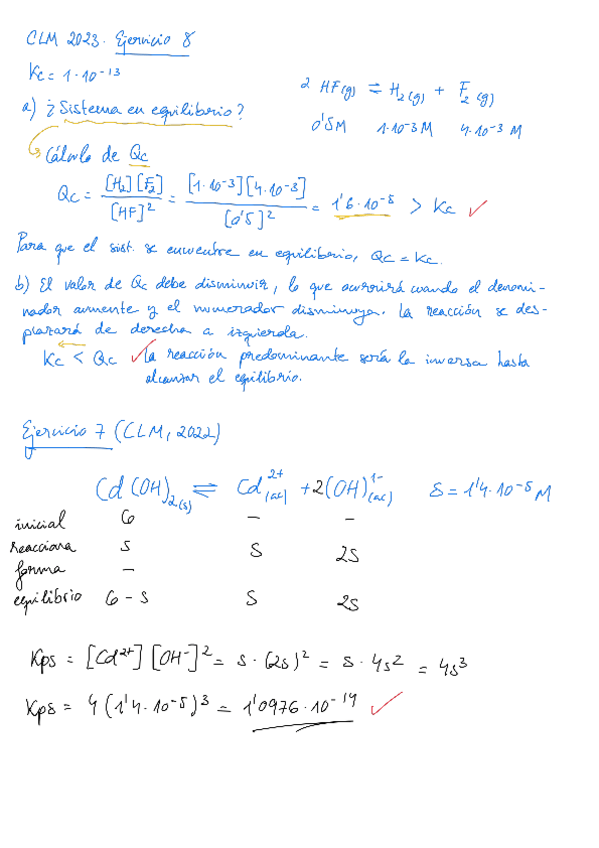 CLM 2023. Ejercicio 8
Kc = 1·10⁻¹³
2 HF(g) ⇌ H₂(g) + F₂(g)
a) ¿Sistema en equilibrio?
0'5M 1·10⁻³M 4·10⁻³ M
Cálculo de Qc
Qc = [H₂][F₂] / [HF]² = [1·10⁻³][4·10⁻³] / [0'5]² = 1'6·10⁻⁵ > Kc ✓
Para que el sist. se encuentre en equilibrio, Qc = Kc.
b) El valor de Qc debe disminuir, lo que ocurrirá cuando el denomi-
nador aumente y el numerador disminuya. La reacción se des-
plazará de derecha a izquierda.
Kc < Qc ✓ La reacción predominante sería la inversa hasta
alcanzar el equilibrio.
Ejercicio 7 (CLM, 2022)
Cd(OH)₂(s) ⇌ Cd²⁺(ac) + 2(OH)¹⁻(ac) s = 1'4·10⁻⁵ M
inicial G - -
reacciona s s 2s
forma -
equilibrio G - s s 2s
Kps = [Cd²⁺][OH⁻]² = s·(2s)² = s·4s² = 4s³
Kps = 4(1'4·10⁻⁵)³ = 1'0976·10⁻¹⁴ ✓